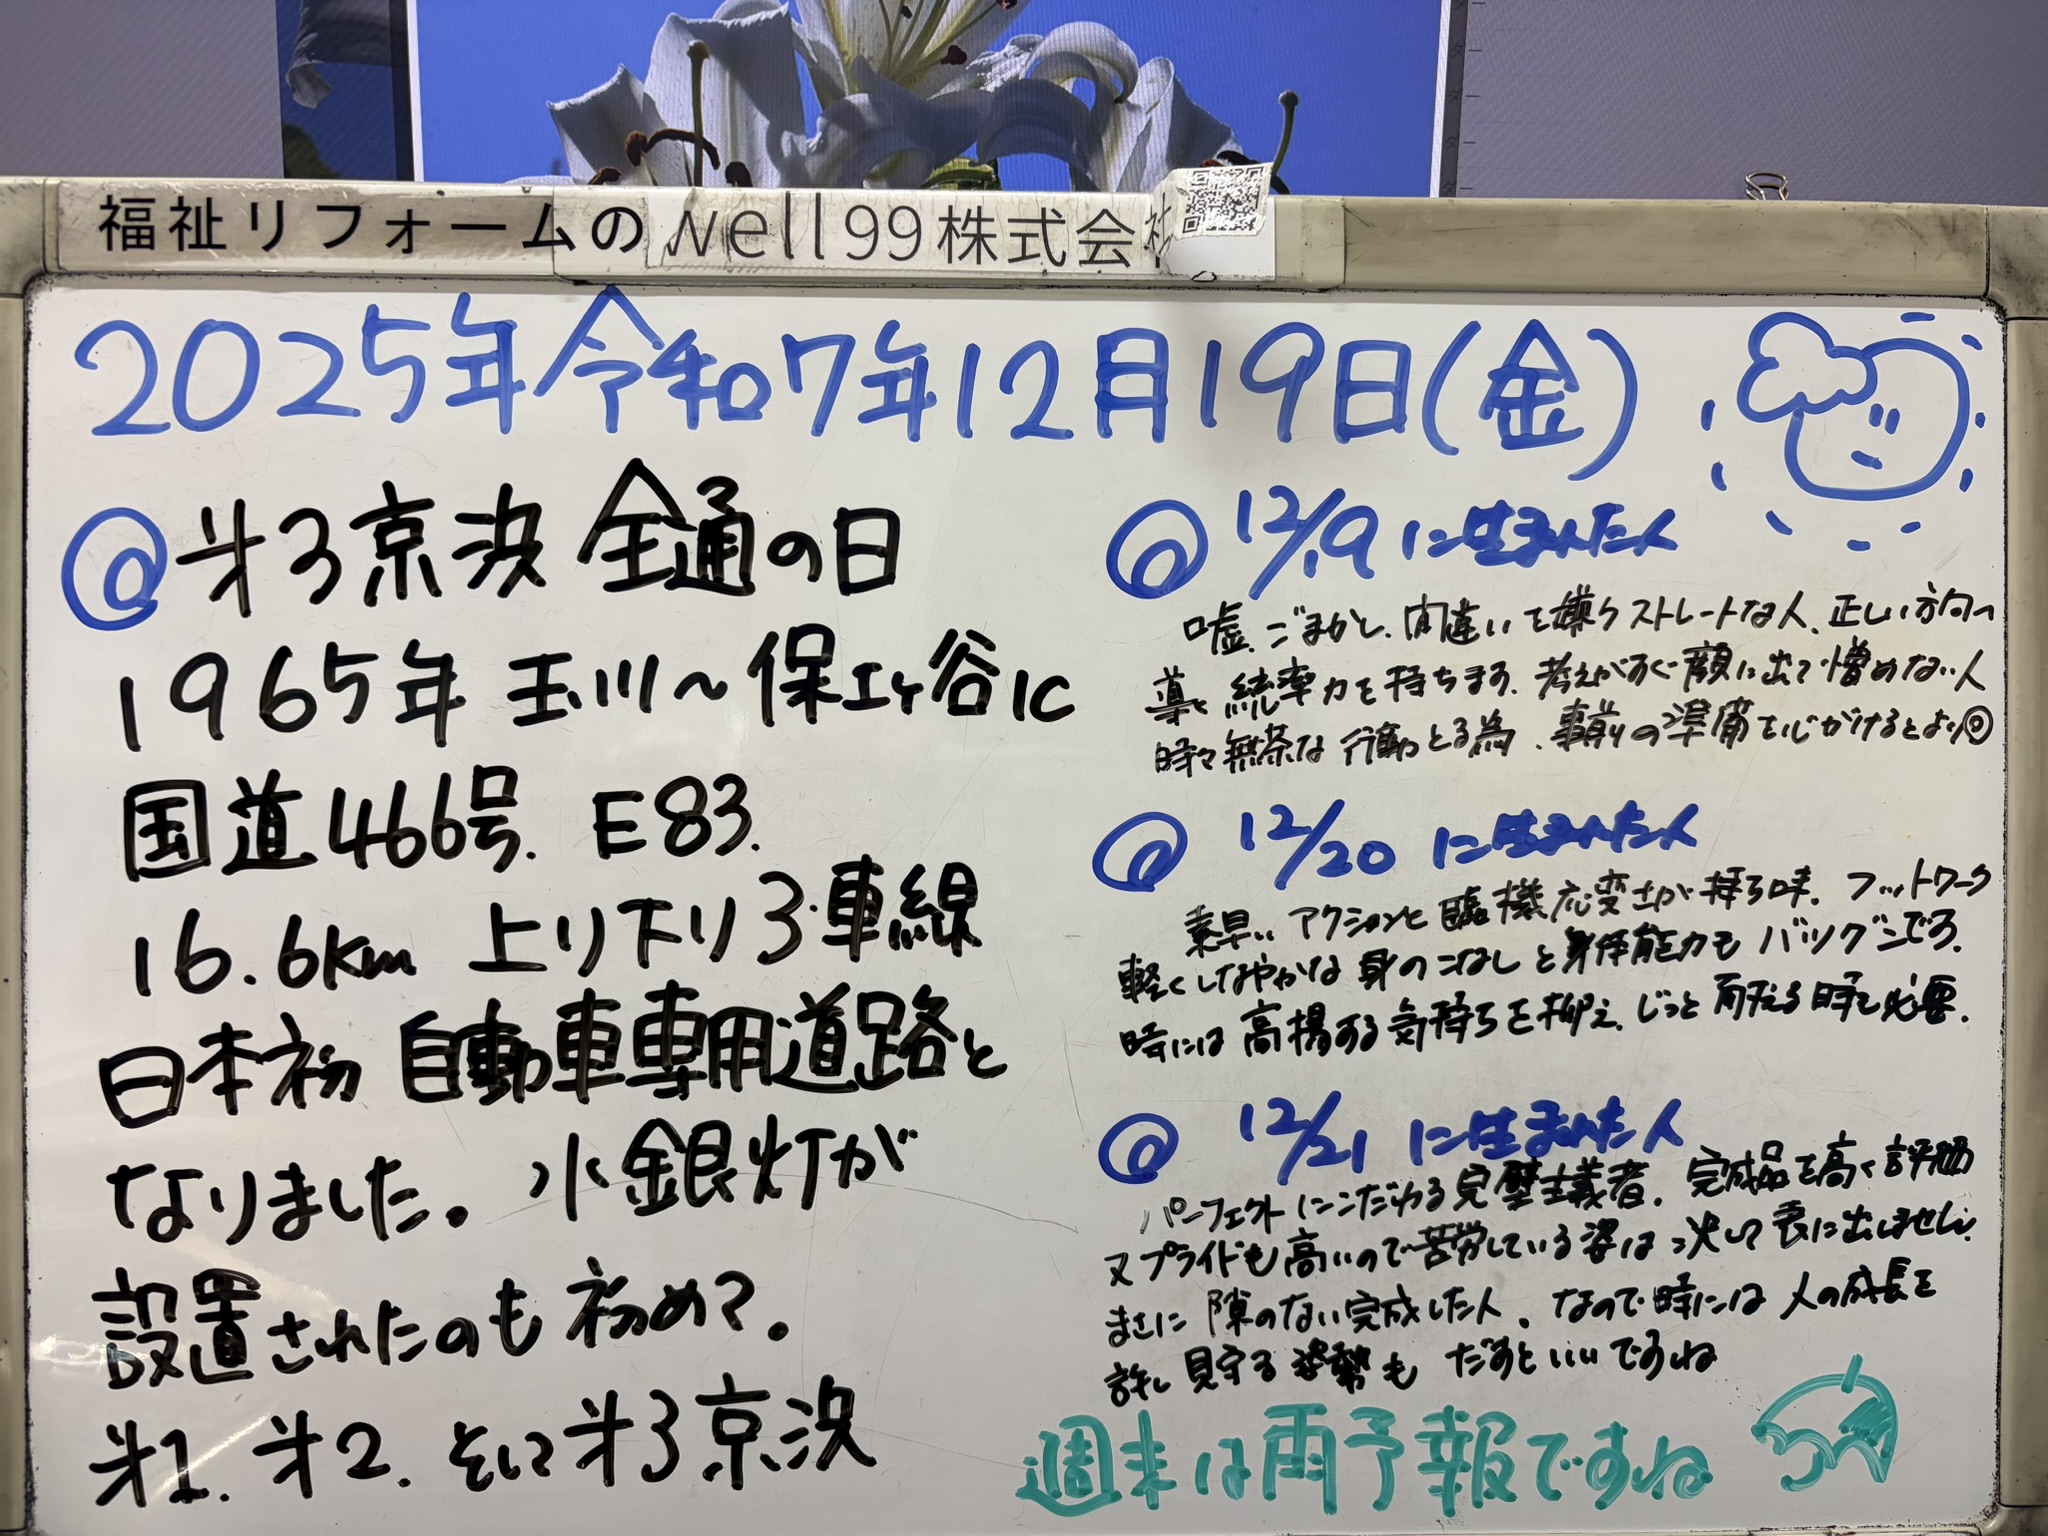 福祉リフォームのwell99株式会社
2025年令和7年12月19日(金)
@才3京浜全通の日
1965年 玉川～保土ヶ谷IC
国道466号. E83.
16.6km 上り下り3車線
日本初 自動車専用道路と
なりました。水銀灯が
設置されたのも初め?.
才1. 才2. そして才3京浜
@ 12/19 に生まれた人
嘘.ごまかし.間違いを嫌うストレートな人.正しい方向へ
導く統率力を持ちます.考えがすぐ顔に出て憎めない人
時々無茶な行動とる為.事前の準備を心がけるとより◎
@ 12/20 に生まれた人
素早いアクションと臨機応変さが持ち味.フットワーク
軽くしなやかな身のこなしと身体能力もバツグンです.
時には高揚する気持ちを抑え.じっと耐える時も必要.
@ 12/21 に生まれた人
パーフェクトにこだわる完璧主義者.完成品を高く評価
又プライドも高いので苦労している姿は決して表に出しません.
まさに隙のない完成した人.なので時には人の成長を
許し見守る姿勢もだすといいですね
週末は雨予報ですね